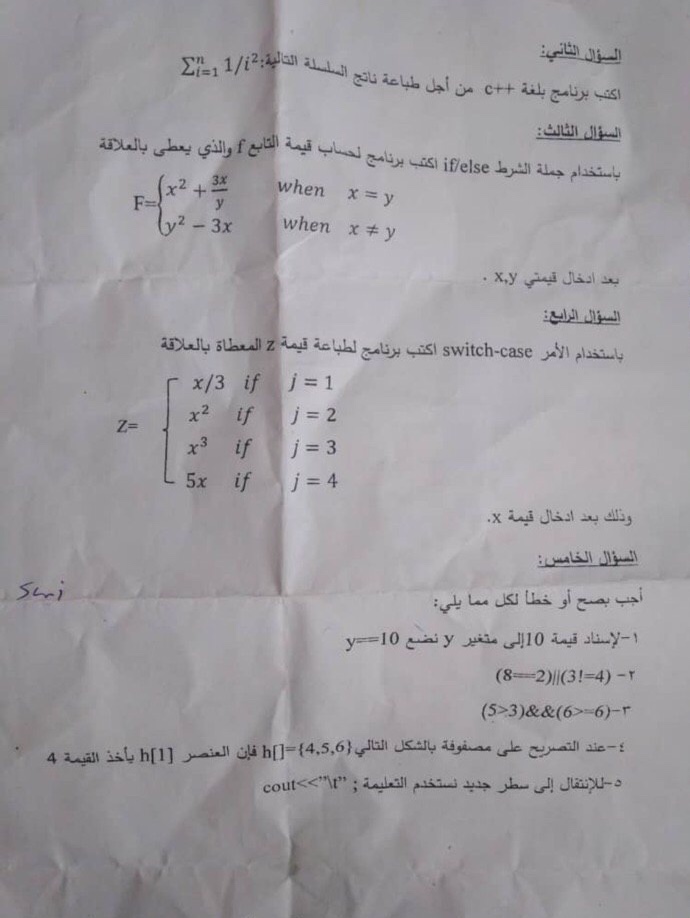 السؤال الثاني:
اكتب برنامج بلغة c++ من أجل طباعة ناتج السلسلة التالية: ∑ⁿᵢ₌₁ 1/i²
السؤال الثالث:
باستخدام جملة الشرط if/else اكتب برنامج لحساب قيمة التابع f والذي يعطى بالعلاقة
F={ x² + 3x/y when x = y
y² − 3x when x ≠ y
بعد ادخال قيمتي x,y .
السؤال الرابع:
باستخدام الأمر switch-case اكتب برنامج لطباعة قيمة z المعطاة بالعلاقة
x/3 if j = 1
Z= x² if j = 2
x³ if j = 3
5x if j = 4
وذلك بعد ادخال قيمة x.
السؤال الخامس:
أجب بصح أو خطأ لكل مما يلي:
١-لإسناد قيمة 10إلى متغير y نضع y==10
٢- (8==2)||(3!=4)
٣-(5>3)&&(6>=6)
٤-عند التصريح على مصفوفة بالشكل التالي h[]={4,5,6} فإن العنصر h[1] يأخذ القيمة 4
٥-للإنتقال إلى سطر جديد نستخدم التعليمة ; cout<<"\t"